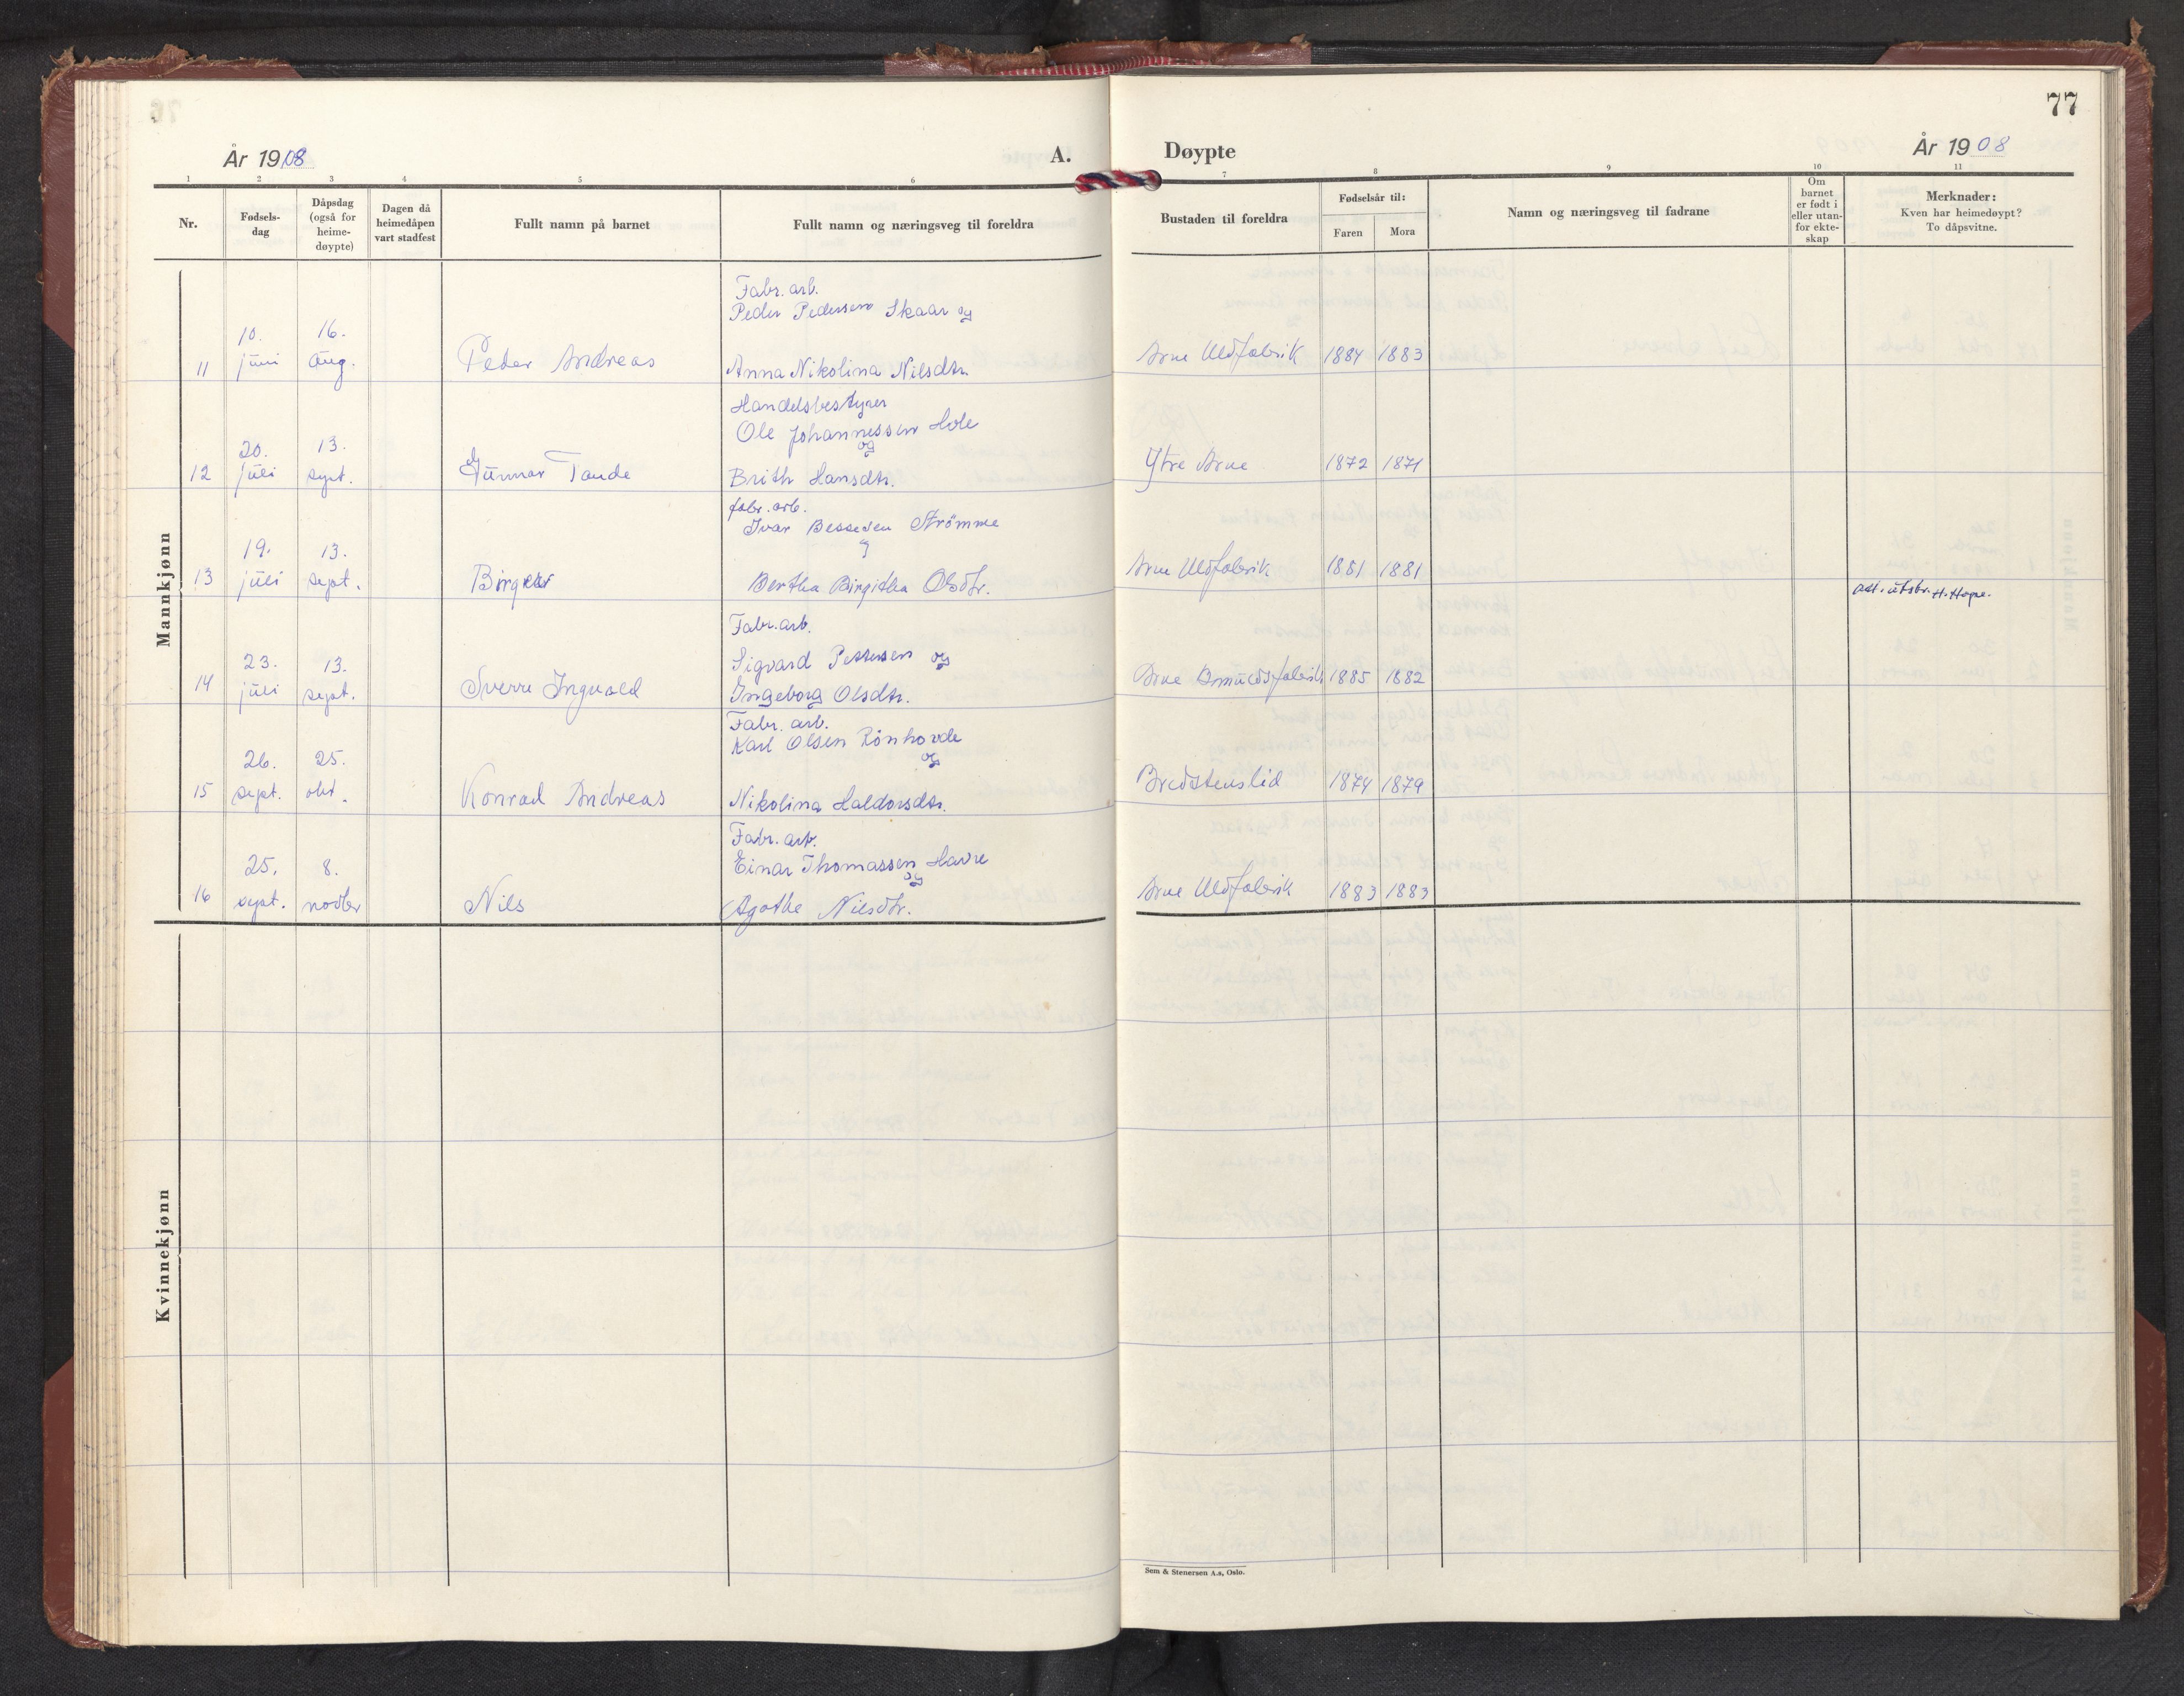 77
År 1908
A.
Døypte
År 1908
1 2 3 4 5 6 7 8 9 10 11
Nr.
Fødsels-
dag
Dåpsdag
(også for
heime-
døypte)
Dagen då
heimedåpen
vart stadfest
Fullt namn på barnet
Fullt namn og næringsveg til foreldra
Bustaden til foreldra
Fødselsår til:
Faren Mora
Namn og næringsveg til fadrane
Om
barnet
er født i
eller utan-
for ekte-
skap
Merknader:
Kven har heimedøypt?
To dåpsvitne.
Mannkjønn
Fabr. arb.
Peder Pedersen Skaar og
10. 16.
11 juni aug. Peder Andreas Anna Nikolina Nilsdtr. Arne Uldfabrik 1884 1883
Handelsbestyrer
Ole Johannessen Hole
og
20. 13.
12 juli sept. Gunnar Tande Brith Hansdtr. Ytre Arne 1872 1871
fabr. arb.
Ivar Bessesen Strømme
og
19. 13.
13 juli sept. Birger Bertha Birgitha Olsdtr. Arne Uldfabrik 1881 1881
att. utskr. H. Hope.
Fabr. arb.
23. 13. Sigvard Pettersen og
14 juli sept. Sverre Ingvald Ingeborg Olsdtr. Arne Bomuldsfabrik 1885 1882
Fabr. arb.
Karl Olsen Rönhovde
og
26. 25.
15 sept. okt. Konrad Andreas Nikolina Haldorsdtr. Bredstenslid 1874 1879
Fabr. arb.
Einar Thomassen Havre
og
25. 8.
16 sept. novbr Nils Agathe Nilsdtr. Arne Uldfabrik 1883 1883
Kvinnekjønn
Sem & Stenersen A.s, Oslo.